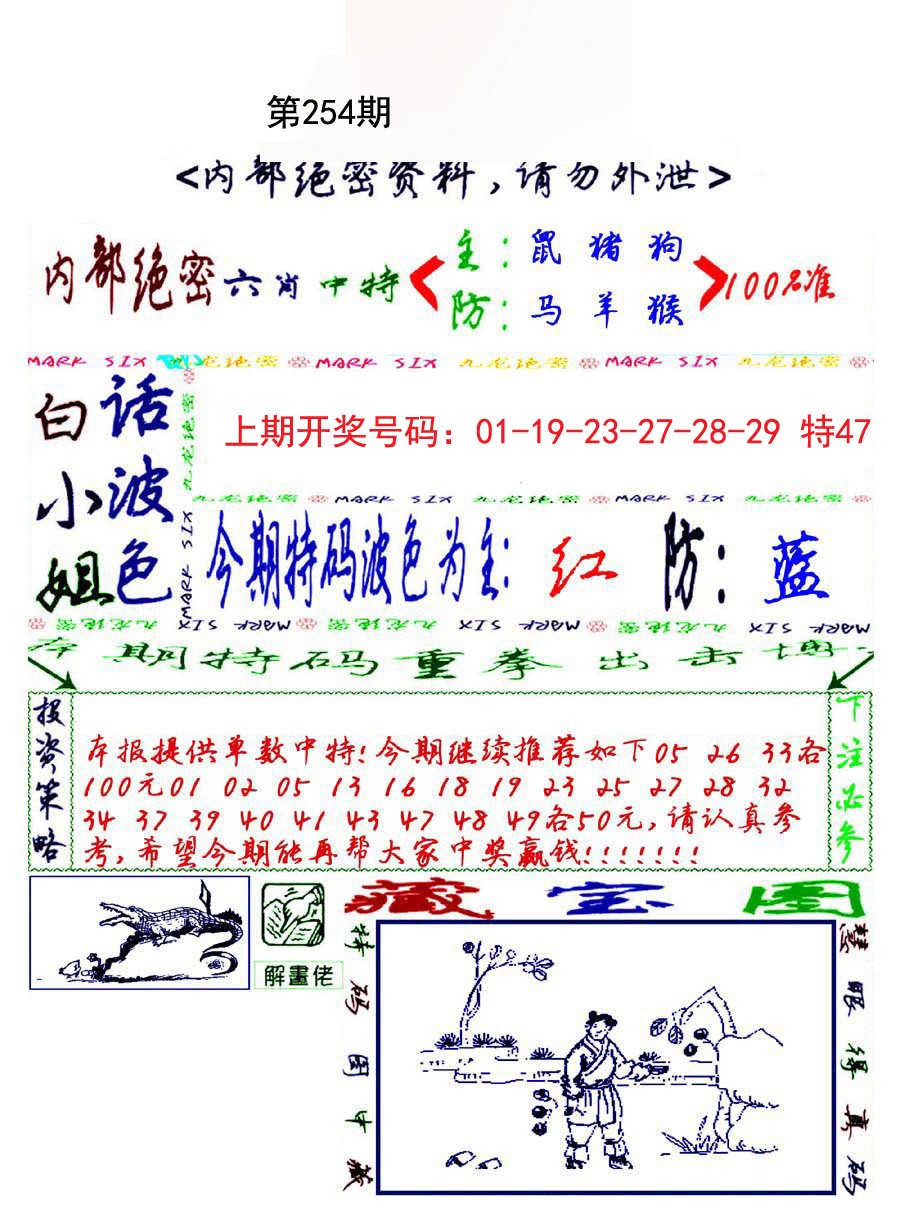 第254期
<内部绝密资料,请勿外泄>
内部绝密六肖中特
主：鼠 猪 狗
防：马 羊 猴
100%准
MARK SIX 九龙绝密 MARK SIX 九龙绝密 MARK SIX 九龙绝密
白话
小波
姐色
九龙绝密 MARK SIX
上期开奖号码：01-19-23-27-28-29 特47
九龙绝密 MARK SIX 九龙绝密 MARK SIX 九龙绝密
今期特码波色为主：红 防：蓝
九龙绝密 MARK SIX 九龙绝密 MARK SIX 九龙绝密 MARK SIX
本期特码重拳出击博
投资策略
本报提供单数中特!今期继续推荐如下05 26 33各
100元01 02 05 13 16 18 19 23 25 27 28 32
34 37 39 40 41 43 47 48 49各50元,请认真参
考,希望今期能再帮大家中奖赢钱!!!!!!!
下注必参
解畫佬
藏宝图
特码图中藏
慧眼得真码